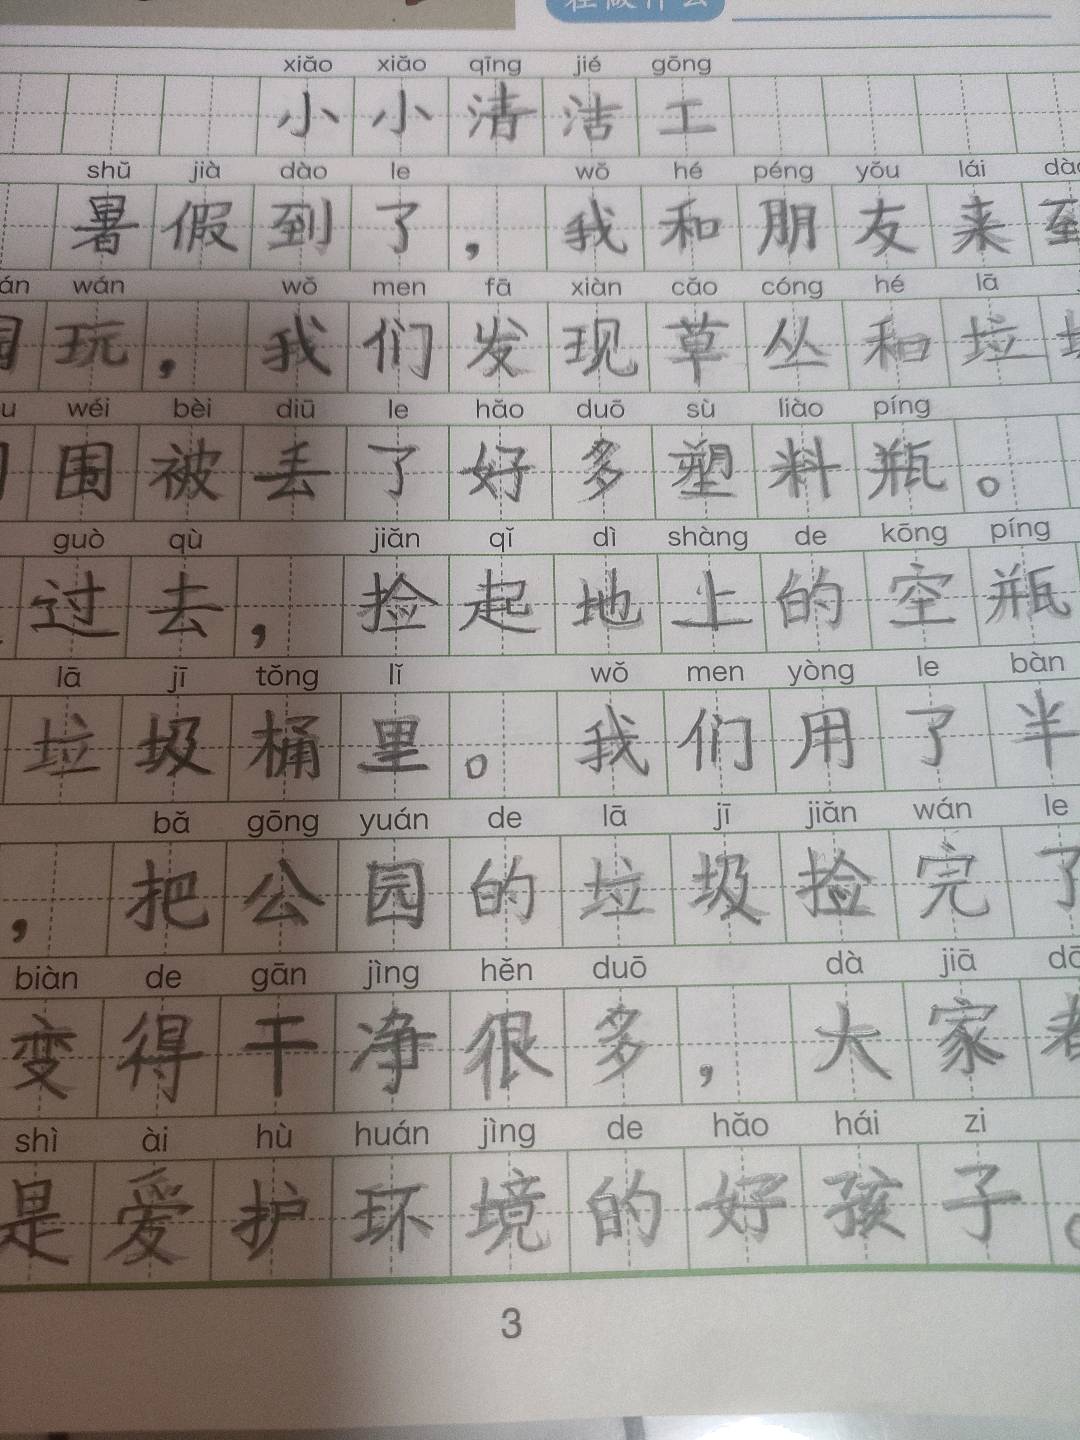 xiǎo xiǎo qīng jié gōng
小小清洁工
shǔ jià dào le wǒ hé péng yǒu lái
暑假到了，我和朋友来到
wán wǒ men fā xiàn cǎo cóng hé lā
玩，我们发现草丛和垃
wéi bèi diū le hǎo duō sù liào píng
围被丢了好多塑料瓶。
guò qù jiǎn qǐ dì shàng de kōng píng
过去，捡起地上的空瓶
lā jī tǒng lǐ wǒ men yòng le bàn
垃圾桶里。我们用了半
bǎ gōng yuán de lā jī jiǎn wán le
，把公园的垃圾捡完了
biàn de gān jìng hěn duō dà jiā
变得干净很多，大家
shì ài hù huán jìng de hǎo hái zi
是爱护环境的好孩子。
3